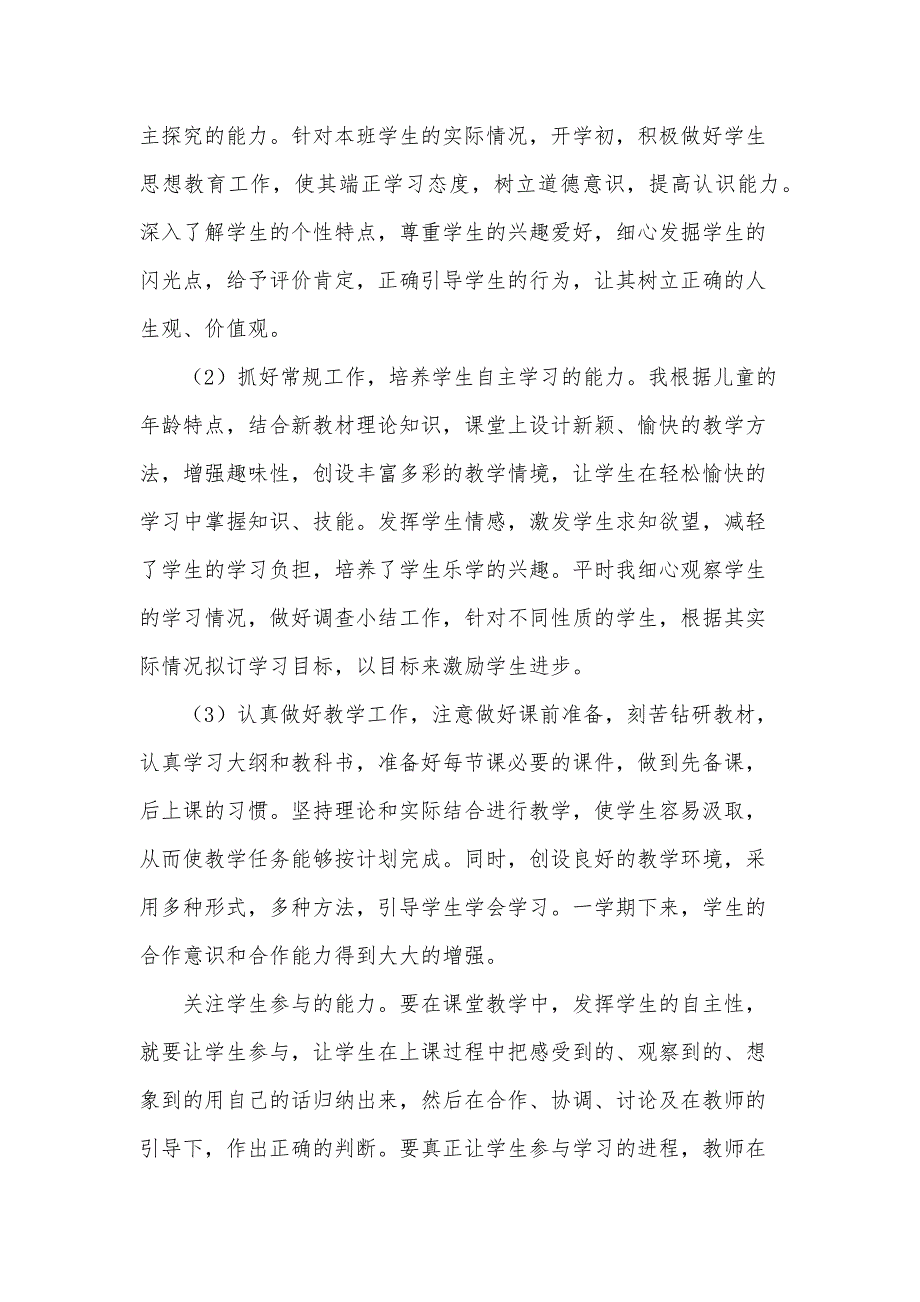 主探究的能力。针对本班学生的实际情况，开学初，积极做好学生
思想教育工作，使其端正学习态度，树立道德意识，提高认识能力。
深入了解学生的个性特点，尊重学生的兴趣爱好，细心发掘学生的
闪光点，给予评价肯定，正确引导学生的行为，让其树立正确的人
生观、价值观。
（2）抓好常规工作，培养学生自主学习的能力。我根据儿童的
年龄特点，结合新教材理论知识，课堂上设计新颖、愉快的教学方
法，增强趣味性，创设丰富多彩的教学情境，让学生在轻松愉快的
学习中掌握知识、技能。发挥学生情感，激发学生求知欲望，减轻
了学生的学习负担，培养了学生乐学的兴趣。平时我细心观察学生
的学习情况，做好调查小结工作，针对不同性质的学生，根据其实
际情况拟订学习目标，以目标来激励学生进步。
（3）认真做好教学工作，注意做好课前准备，刻苦钻研教材，
认真学习大纲和教科书，准备好每节课必要的课件，做到先备课，
后上课的习惯。坚持理论和实际结合进行教学，使学生容易汲取，
从而使教学任务能够按计划完成。同时，创设良好的教学环境，采
用多种形式，多种方法，引导学生学会学习。一学期下来，学生的
合作意识和合作能力得到大大的增强。
关注学生参与的能力。要在课堂教学中，发挥学生的自主性，
就要让学生参与，让学生在上课过程中把感受到的、观察到的、想
象到的用自己的话归纳出来，然后在合作、协调、讨论及在教师的
引导下，作出正确的判断。要真正让学生参与学习的进程，教师在